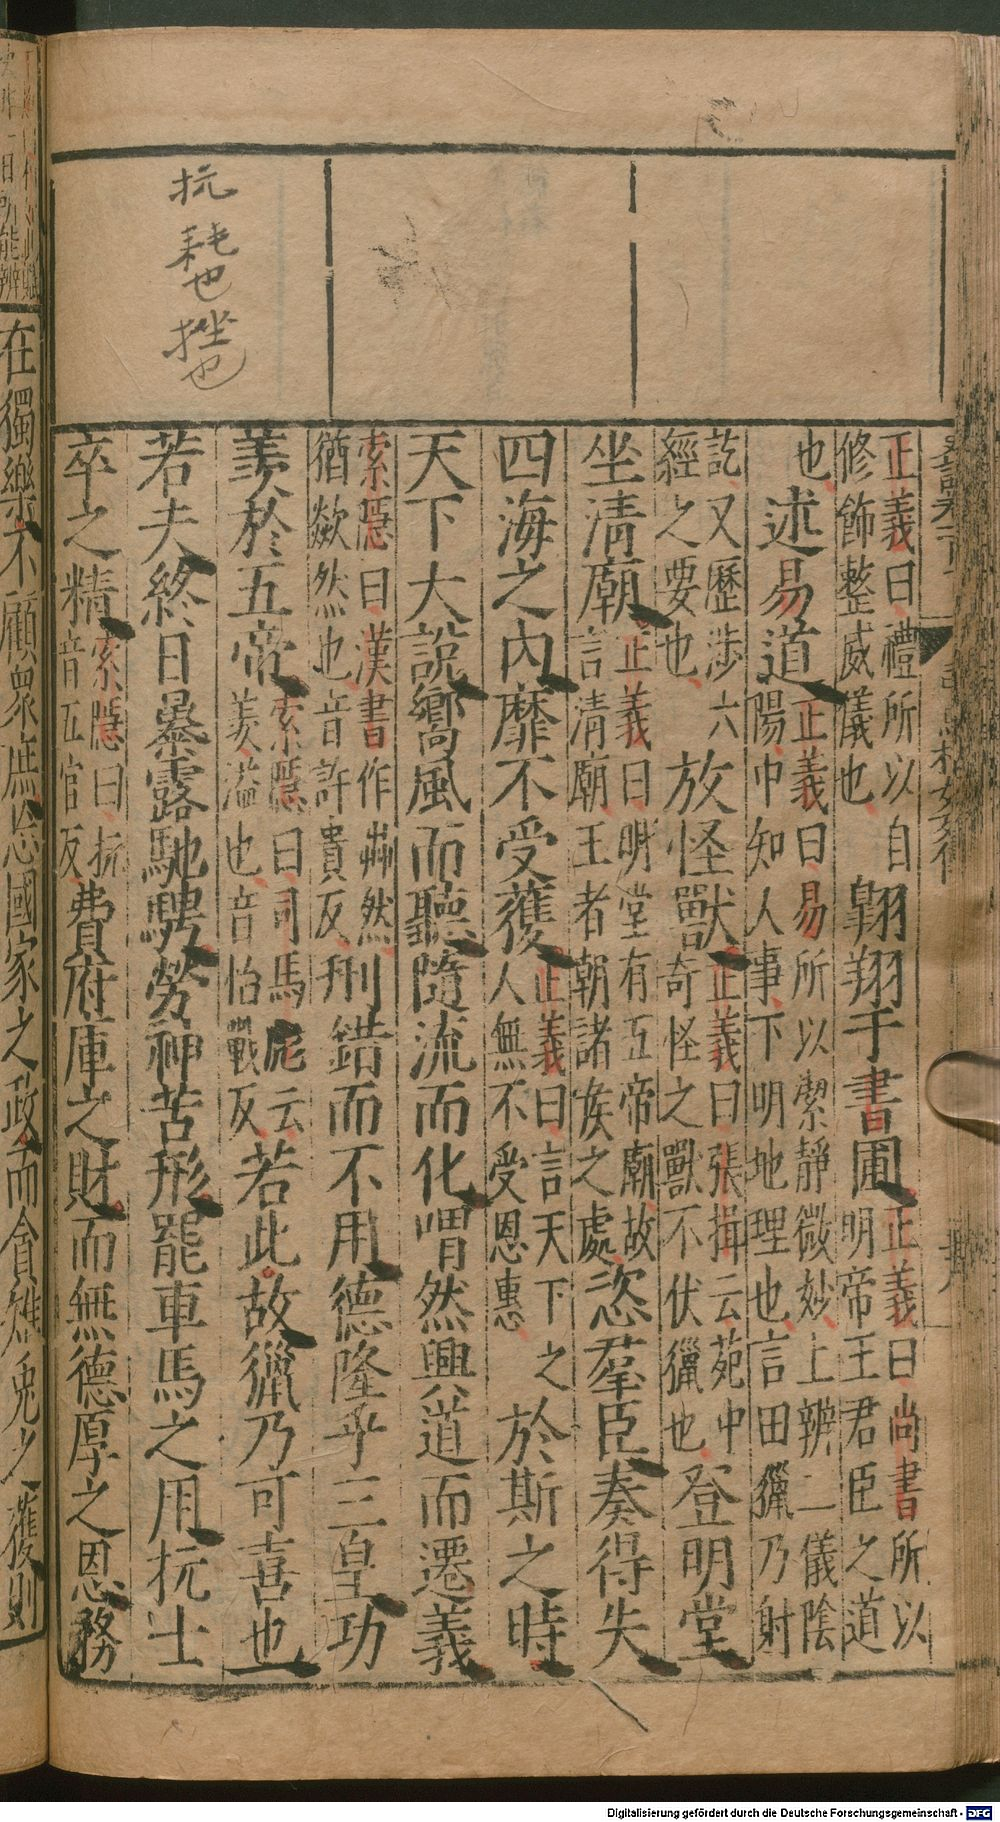 抏
耗也
挫也
正義曰禮所以自
修飾整威儀也
翺翔于書圃
正義曰尚書所以
明帝王君臣之道
也
述易道
正義曰易所以潔靜微妙上辨二儀陰
陽中知人事下明地理也言田獵乃射
訖又歷涉六
經之要也
放怪獸
正義曰張揖云苑中
奇怪之獸不伏獵也
登明堂
坐淸廟
正義曰明堂有五帝廟故
言淸廟王者朝諸侯之處
恣羣臣奏得失
四海之內靡不受獲
正義曰言天下之
人無不受恩惠
於斯之時
天下大說嚮風而聽隨流而化喟然興道而遷義
索隱曰漢書作芔然
猶歘然也音許貴反
刑錯而不用德隆乎三皇功
羨於五帝
索隱曰司馬彪云
羨溢也音怡戰反
若此故獵乃可喜也
若夫終日暴露馳騁勞神苦形罷車馬之用抏士
卒之精
索隱曰抏
音五官反
費府庫之財而無德厚之恩務
在獨樂不顧衆庶忘國家之政而貪雉兔之獲則
Digitalisierung gefördert durch die Deutsche Forschungsgemeinschaft - DFG